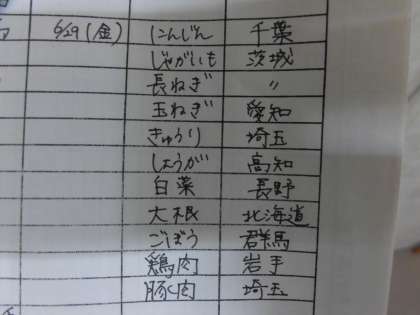 6/29(金) にんじん 千葉
じゃがいも 茨城
長ねぎ 〃
玉ねぎ 愛知
きゅうり 埼玉
しょうが 高知
白菜 長野
大根 北海道
ごぼう 群馬
鶏肉 岩手
豚肉 埼玉